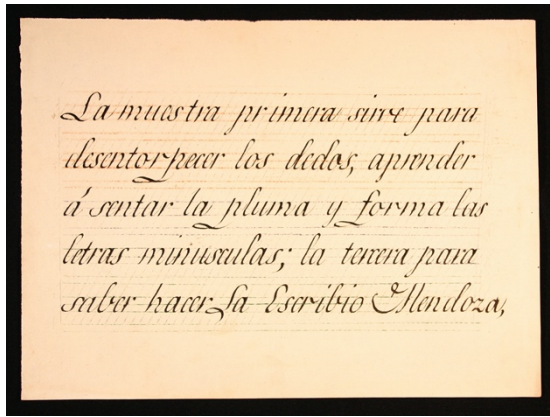 La muestra primera sirve para
desentorpecer los dedos, aprender
á sentar la pluma y forma las
letras minusculas; la tercera para
saber hacer La Escribio Mendoza,